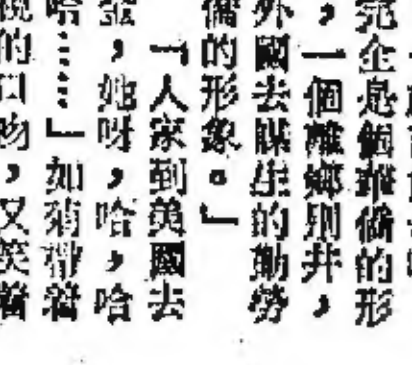 完全是個華僑的形
，一個離鄉別井，
外國去謀生的勤勞
僑的形象。」
「人家到美國去
金，她呀，哈，哈
哈……」如菊帶着
的口吻，又笑着